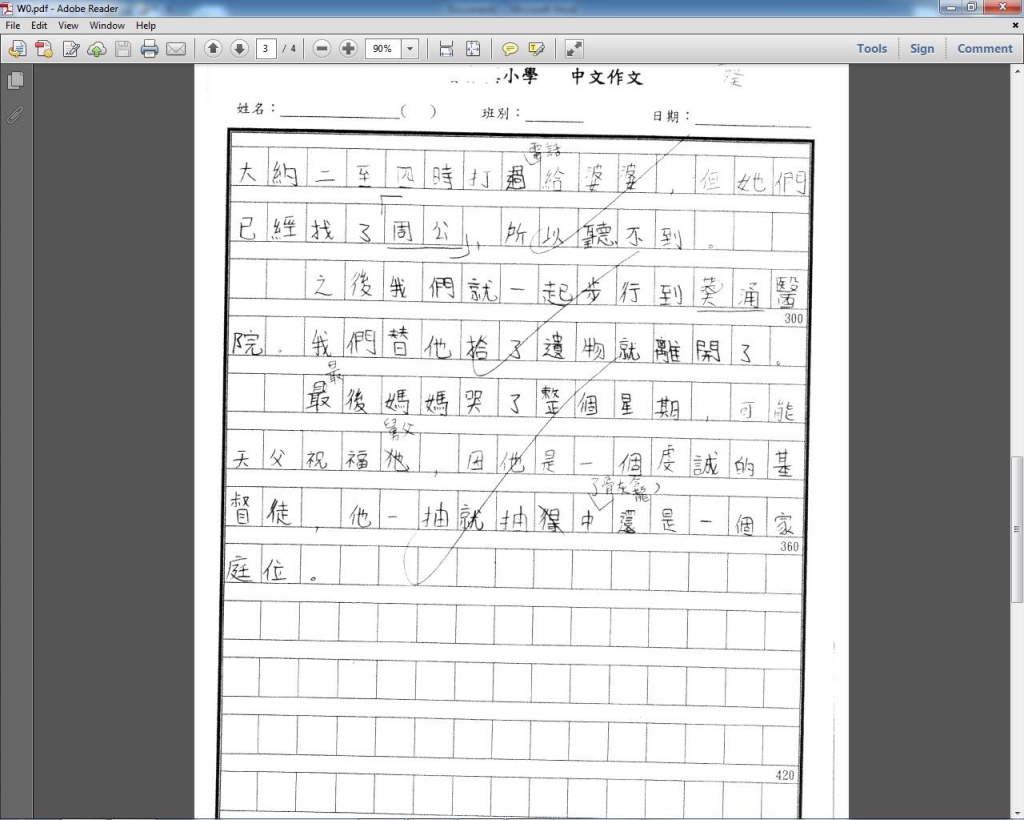 W0.pdf - Adobe Reader
File Edit View Window Help
3 / 4 90% Tools Sign Comment
小學 中文作文
姓名：＿＿＿＿＿( ) 班別：＿＿＿ 日期：＿＿＿＿＿
電話
大約二至四時打過給婆婆，但她們
已經找了「周公」，所以聽不到。
之後我們就一起步行到葵涌醫
300
院。我們替他拾了遺物就離開了。
最
最後媽媽哭了整個星期，可能
舅父
天父祝福他，因他是一個虔誠的基
了骨灰龕
督徒，他一抽就抽中還是一個家
360
庭位。
420